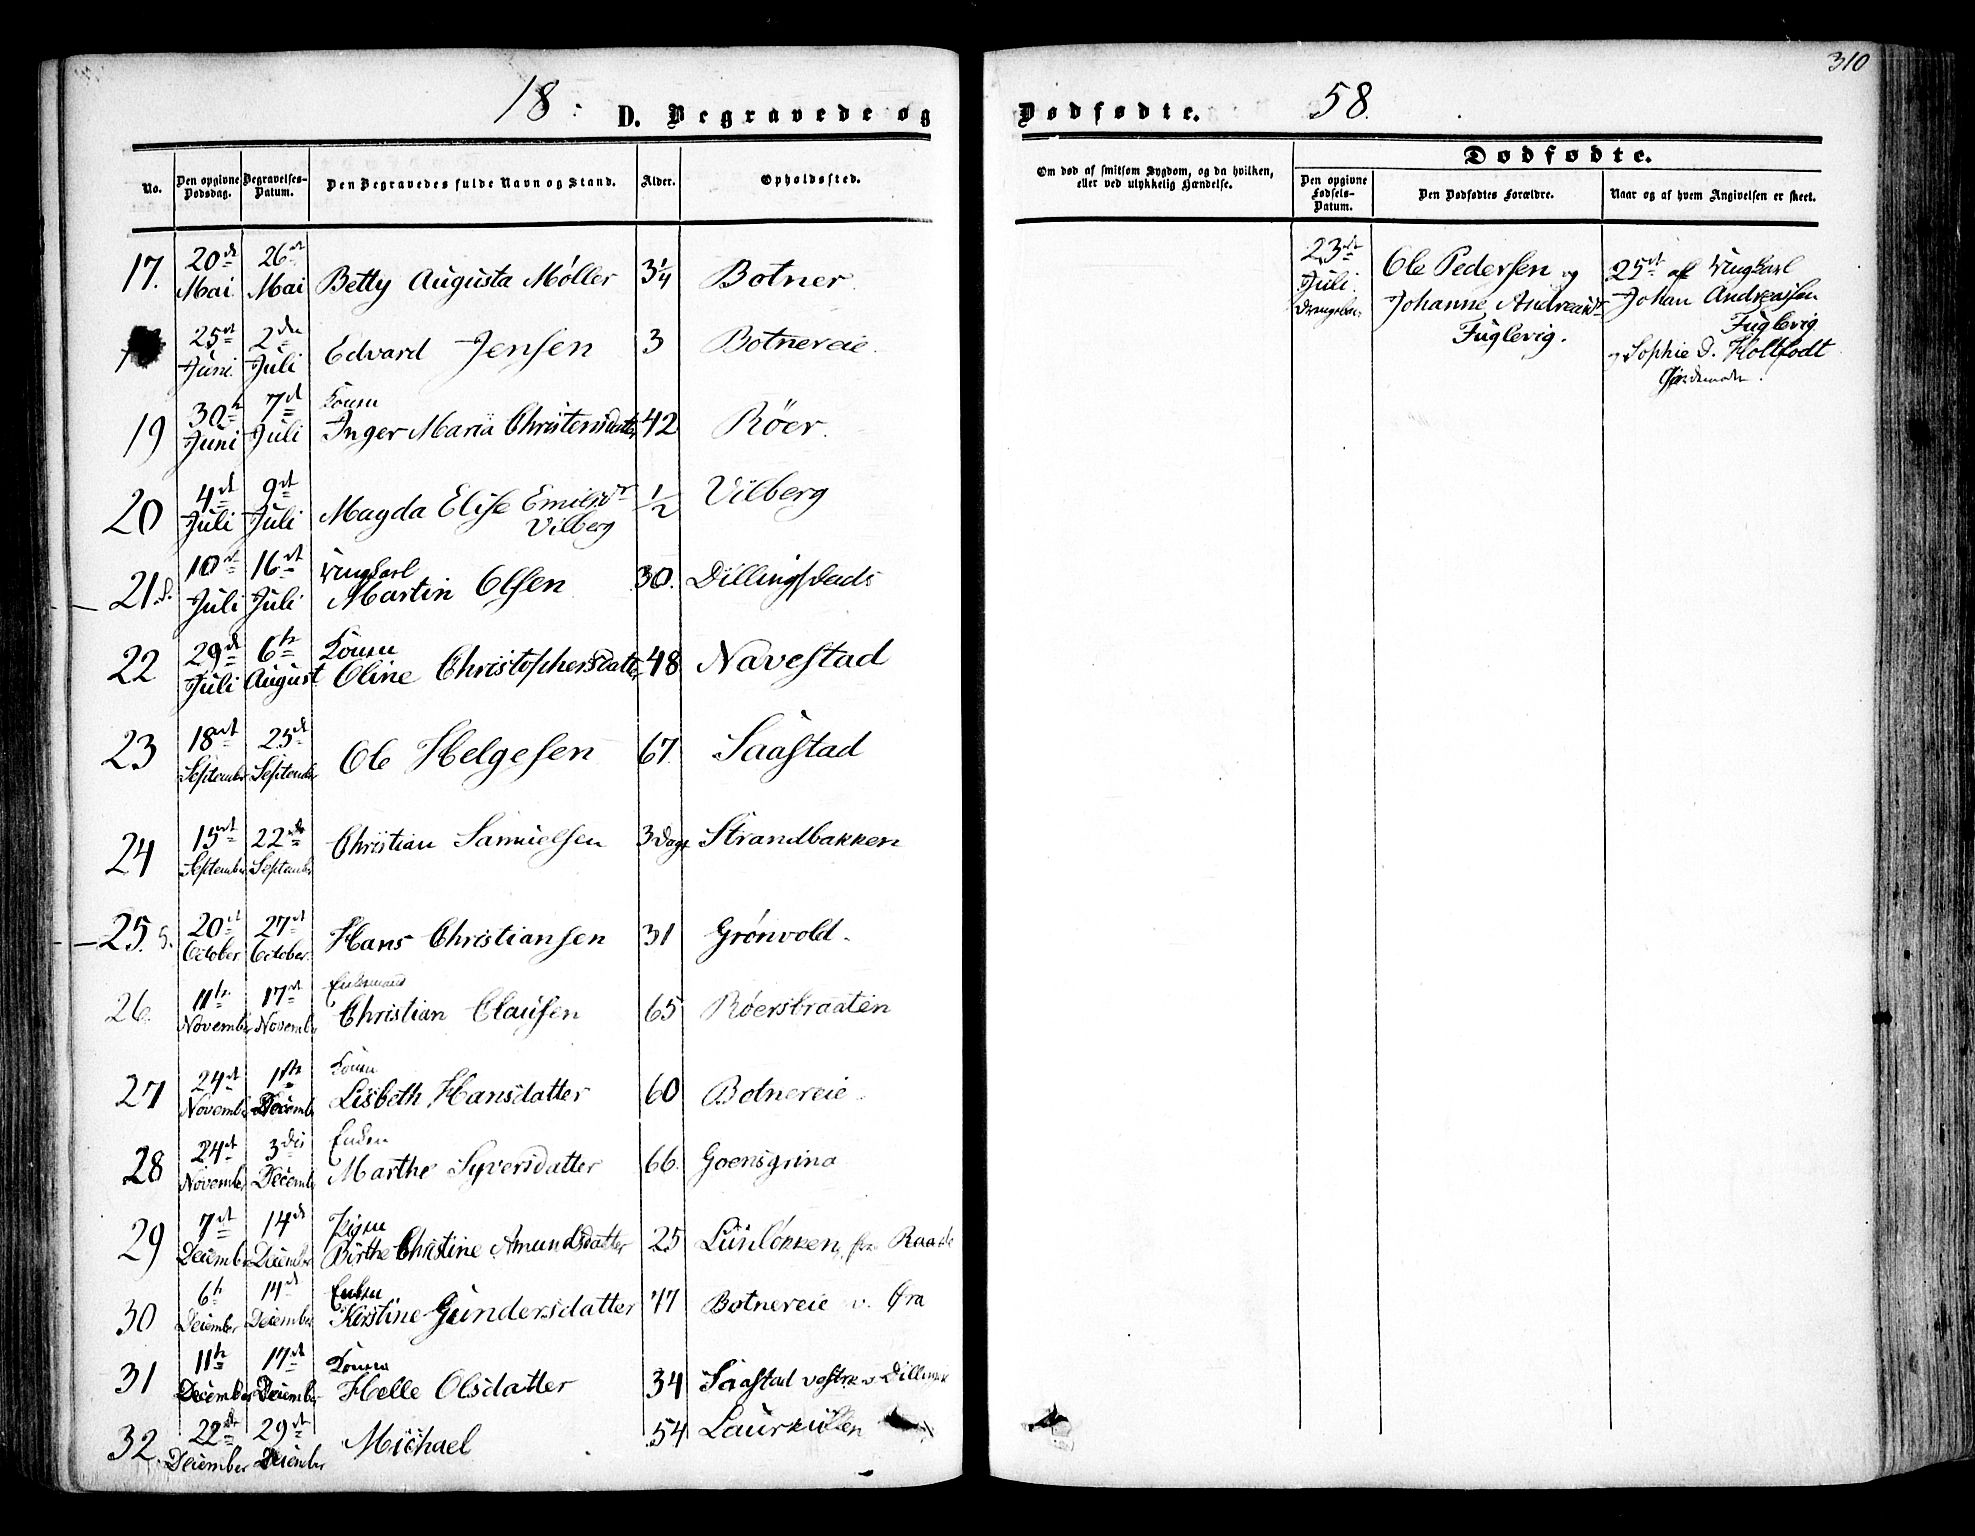 310
18
58.
D. Begravede og
Dødfødte.
No.
Den opgivne Dødsdag.
Begravelses-Datum.
Den Begravedes fulde Navn og Stand.
Alder.
Opholdssted.
Om død af smitsom Sygdom, og da hvilken,
eller ved ulykkelig Hændelse.
Dødfødte.
Den opgivne Fødsels-Datum.
Den Dødfødtes Forældre.
Naar og af hvem Angivelsen er skeet.
17. 20de Mai 26de Mai Betty Augusta Møller 3¼ Botner.
25de Juni 2den Juli Edvard Jensen 3 Botnereie.
19 30te Juni 7de Juli Konen
Inger Maria Christensdatter 42 Röer.
20 4de Juli 9de Juli Magda Elise Emilsdr
Vilberg ½ Vilberg
21 10de Juli 16de Juli Ungkarl
Martin Olsen 30. Dillingstads
22 29de Juli 6te August Konen
Oline Christophersdatter 48 Navestad
23 18de September 25de September Ole Helgesen 67. Saastad
24 15de September 22de September Christian Samuelsen 3 Dage Strandbakken
25. 20de October 27de October Hans Christiansen 31 Grönvold.
26. 11te November 17de November Enkemand
Christian Clausen 65 Röersbraaten
27 24de November 1ste December Konen
Lisbeth Hansdatter 60 Botnereie.
28 24de November 3die December Enken
Marthe Syversdatter 66. Goensgrina
29 7de December 14de December Pigen
Birthe Christine Amundsdatter 25 Lünlökken, fra Raade
30 6te December 14de December Enken
Kirstine Gundersdatter 77 Botnereie v. Øra
31 11te December 17de December Konen
Helle Olsdatter 34 Saastad vestre v. Dilling
32. 22de December 29de December Michael 54 Laurkullen
23de Juli
Ole Pedersen og
Johanne Andreasdr
Fuglevig.
25de af Ungkarl
Johan Andreassen
Fuglevig
og Sophie d. Holtfodt
Gjordemoder.